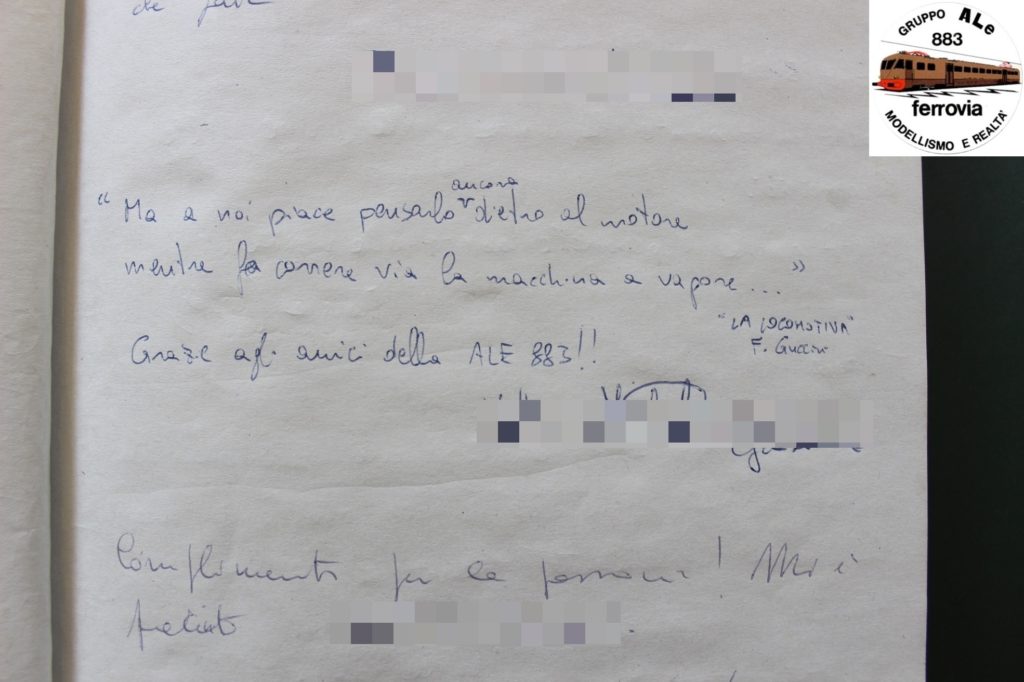 GRUPPO ALe
883
ferrovia
MODELLISMO E REALTA'
de fare
ancora
" Ma a noi piace pensarlo dietro al motore
mentre fa correre via la macchina a vapore... "
"LA LOCOMOTIVA"
F. Guccini
Grazie agli amici della ALE 883!!
Complimenti per la passione! Mi è
piaciuto